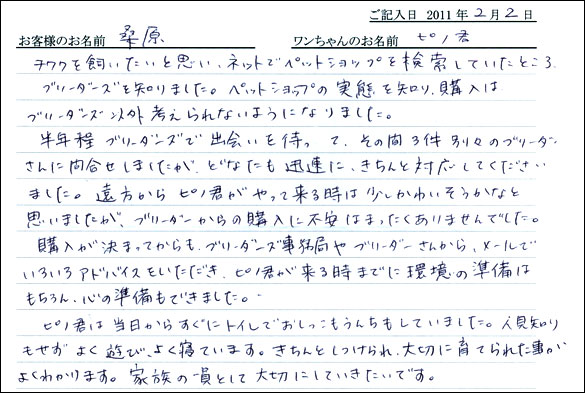 ご記入日 2011年2月2日
お客様のお名前 桑原 ワンちゃんのお名前 ピノ君
チワワを飼いたいと思い、ネットでペットショップを検索していたところ
ブリーダーズを知りました。ペットショップの実態を知り、購入は
ブリーダーズ以外考えられないようになりました。
半年程ブリーダーズで出会いを待って、その間3件別々のブリーダー
さんに問合せしましたが、どなたも迅速に、きちんと対応してください
ました。遠方からピノ君がやって来る時は少しかわいそうかなと
思いましたが、ブリーダーからの購入に不安はまったくありませんでした。
購入が決まってからも、ブリーダーズ事務局やブリーダーさんから、メールで
いろいろアドバイスをいただき、ピノ君が来る時までに環境の準備は
もちろん、心の準備もできました。
ピノ君は当日からすぐにトイレでおしっこもうんちもしていました。人見知り
もせず よく遊び、よく寝ています。きちんとしつけられ、大切に育てられた事が
よくわかります。家族の一員として大切にしていきたいです。